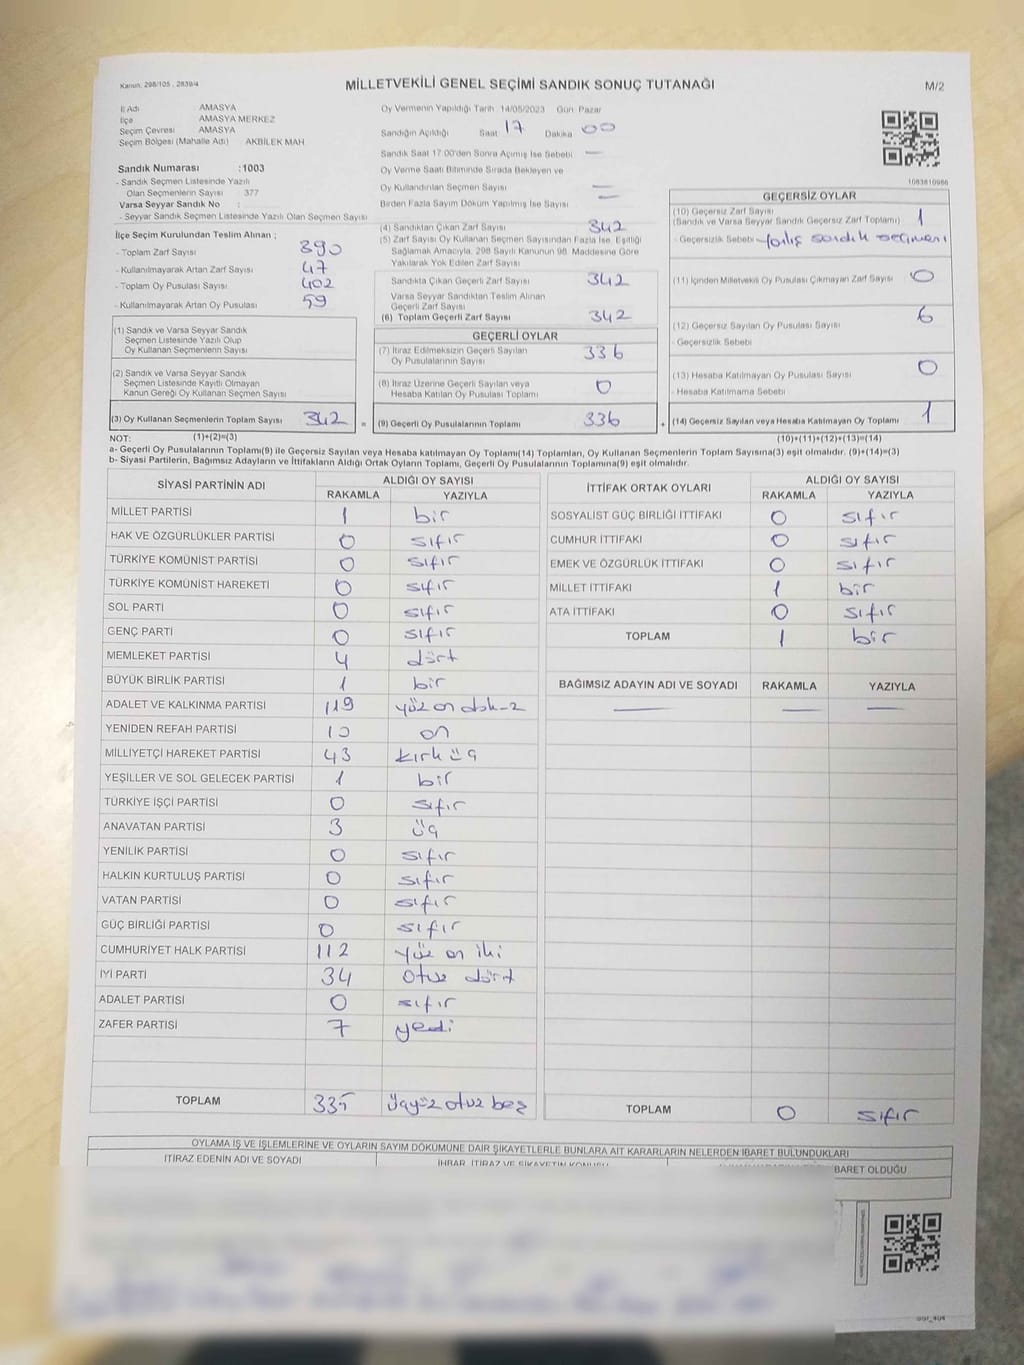 Kanun: 298/105 , 2839/4
MİLLETVEKİLİ GENEL SEÇİMİ SANDIK SONUÇ TUTANAĞI
M/2
İl Adı : AMASYA
İlçe : AMASYA MERKEZ
Seçim Çevresi : AMASYA
Seçim Bölgesi (Mahalle Adı) : AKBİLEK MAH
Sandık Numarası :1003
- Sandık Seçmen Listesinde Yazılı
Olan Seçmenlerin Sayısı : 377
Varsa Seyyar Sandık No :
- Seyyar Sandık Seçmen Listesinde Yazılı Olan Seçmen Sayısı
İlçe Seçim Kurulundan Teslim Alınan ;
- Toplam Zarf Sayısı 390
- Kullanılmayarak Artan Zarf Sayısı 47
- Toplam Oy Pusulası Sayısı 402
- Kullanılmayarak Artan Oy Pusulası 59
(1) Sandık ve Varsa Seyyar Sandık
Seçmen Listesinde Yazılı Olup
Oy Kullanan Seçmenlerin Sayısı
(2) Sandık ve Varsa Seyyar Sandık
Seçmen Listesinde Kayıtlı Olmayan
Kanun Gereği Oy Kullanan Seçmen Sayısı
(3) Oy Kullanan Seçmenlerin Toplam Sayısı 342
Oy Vermenin Yapıldığı Tarih: 14/05/2023 Gün: Pazar
Sandığın Açıldığı Saat: 17 Dakika 00
Sandık Saat 17:00'den Sonra Açımış İse Sebebi —
Oy Verme Saati Bitiminde Sırada Bekleyen ve
Oy Kullandırılan Seçmen Sayısı —
Birden Fazla Sayım Döküm Yapılmış İse Sayısı —
(4) Sandıktan Çıkan Zarf Sayısı 342
(5) Zarf Sayısı Oy Kullanan Seçmen Sayısından Fazla İse, Eşitliği
Sağlamak Amacıyla, 298 Sayılı Kanunun 98. Maddesine Göre
Yakılarak Yok Edilen Zarf Sayısı
Sandıkta Çıkan Geçerli Zarf Sayısı 342
Varsa Seyyar Sandıktan Teslim Alınan
Geçerli Zarf Sayısı
(6) Toplam Geçerli Zarf Sayısı 342
GEÇERLİ OYLAR
(7) İtiraz Edilmeksizin Geçerli Sayılan
Oy Pusulalarının Sayısı 336
(8) İtiraz Üzerine Geçerli Sayılan veya
Hesaba Katılan Oy Pusulası Toplamı 0
= (9) Geçerli Oy Pusulalarının Toplamı 336
1083810966
GEÇERSİZ OYLAR
(10) Geçersiz Zarf Sayısı
(Sandık ve Varsa Seyyar Sandık Geçersiz Zarf Toplamı) 1
- Geçersizlik Sebebi sandık seçmeni
(11) İçinden Milletvekili Oy Pusulası Çıkmayan Zarf Sayısı 0
(12) Geçersiz Sayılan Oy Pusulası Sayısı 6
- Geçersizlik Sebebi
(13) Hesaba Katılmayan Oy Pusulası Sayısı 0
- Hesaba Katılmama Sebebi
+ (14) Geçersiz Sayılan veya Hesaba Katılmayan Oy Toplamı 1
NOT: (1)+(2)=(3) (10)+(11)+(12)+(13)=(14)
a- Geçerli Oy Pusulalarının Toplamı(9) ile Geçersiz Sayılan veya Hesaba katılmayan Oy Toplamı(14) Toplamları, Oy Kullanan Seçmenlerin Toplam Sayısına(3) eşit olmalıdır. (9)+(14)=(3)
b- Siyasi Partilerin, Bağımsız Adayların ve İttifakların Aldığı Ortak Oyların Toplamı, Geçerli Oy Pusulalarının Toplamına(9) eşit olmalıdır.
SİYASİ PARTİNİN ADI ALDIĞI OY SAYISI
RAKAMLA YAZIYLA
MİLLET PARTİSİ 1 bir
HAK VE ÖZGÜRLÜKLER PARTİSİ 0 sıfır
TÜRKİYE KOMÜNİST PARTİSİ 0 sıfır
TÜRKİYE KOMÜNİST HAREKETİ 0 sıfır
SOL PARTİ 0 sıfır
GENÇ PARTİ 0 sıfır
MEMLEKET PARTİSİ 4 dört
BÜYÜK BİRLİK PARTİSİ 1 bir
ADALET VE KALKINMA PARTİSİ 119 yüz on
YENİDEN REFAH PARTİSİ 10 on
MİLLİYETÇİ HAREKET PARTİSİ 43 kırk üç
YEŞİLLER VE SOL GELECEK PARTİSİ 1 bir
TÜRKİYE İŞÇİ PARTİSİ 0 sıfır
ANAVATAN PARTİSİ 3 üç
YENİLİK PARTİSİ 0 sıfır
HALKIN KURTULUŞ PARTİSİ 0 sıfır
VATAN PARTİSİ 0 sıfır
GÜÇ BİRLİĞİ PARTİSİ 0 sıfır
CUMHURİYET HALK PARTİSİ 112 yüz on iki
İYİ PARTİ 34 otuz dört
ADALET PARTİSİ 0 sıfır
ZAFER PARTİSİ 7 yedi
TOPLAM 335 üçyüz otuz beş
İTTİFAK ORTAK OYLARI ALDIĞI OY SAYISI
RAKAMLA YAZIYLA
SOSYALİST GÜÇ BİRLİĞİ İTTİFAKI 0 sıfır
CUMHUR İTTİFAKI 0 sıfır
EMEK VE ÖZGÜRLÜK İTTİFAKI 0 sıfır
MİLLET İTTİFAKI 1 bir
ATA İTTİFAKI 0 sıfır
TOPLAM 1 bir
BAĞIMSIZ ADAYIN ADI VE SOYADI RAKAMLA YAZIYLA
— — —
TOPLAM 0 sıfır
OYLAMA İŞ VE İŞLEMLERİNE VE OYLARIN SAYIM DÖKÜMÜNE DAİR ŞİKAYETLERLE BUNLARA AİT KARARLARIN NELERDEN İBARET BULUNDUKLARI
İTİRAZ EDENİN ADI VE SOYADI İHBAR, İTİRAZ VE ŞİKAYETİN KONUSU BARET OLDUĞU